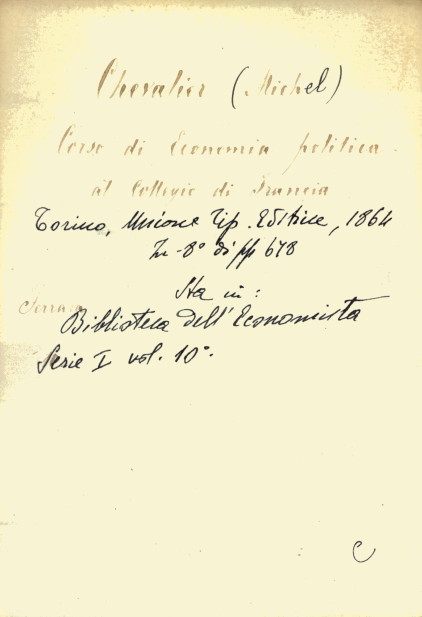 Chevalier (Michel)
Corso di Economia politica
al Collegio di Francia
Torino, Unione Tip. Editrice, 1864
In-8° di pp 678
Sta in:
Biblioteca dell'Economista
Serie I vol. 10°.
C